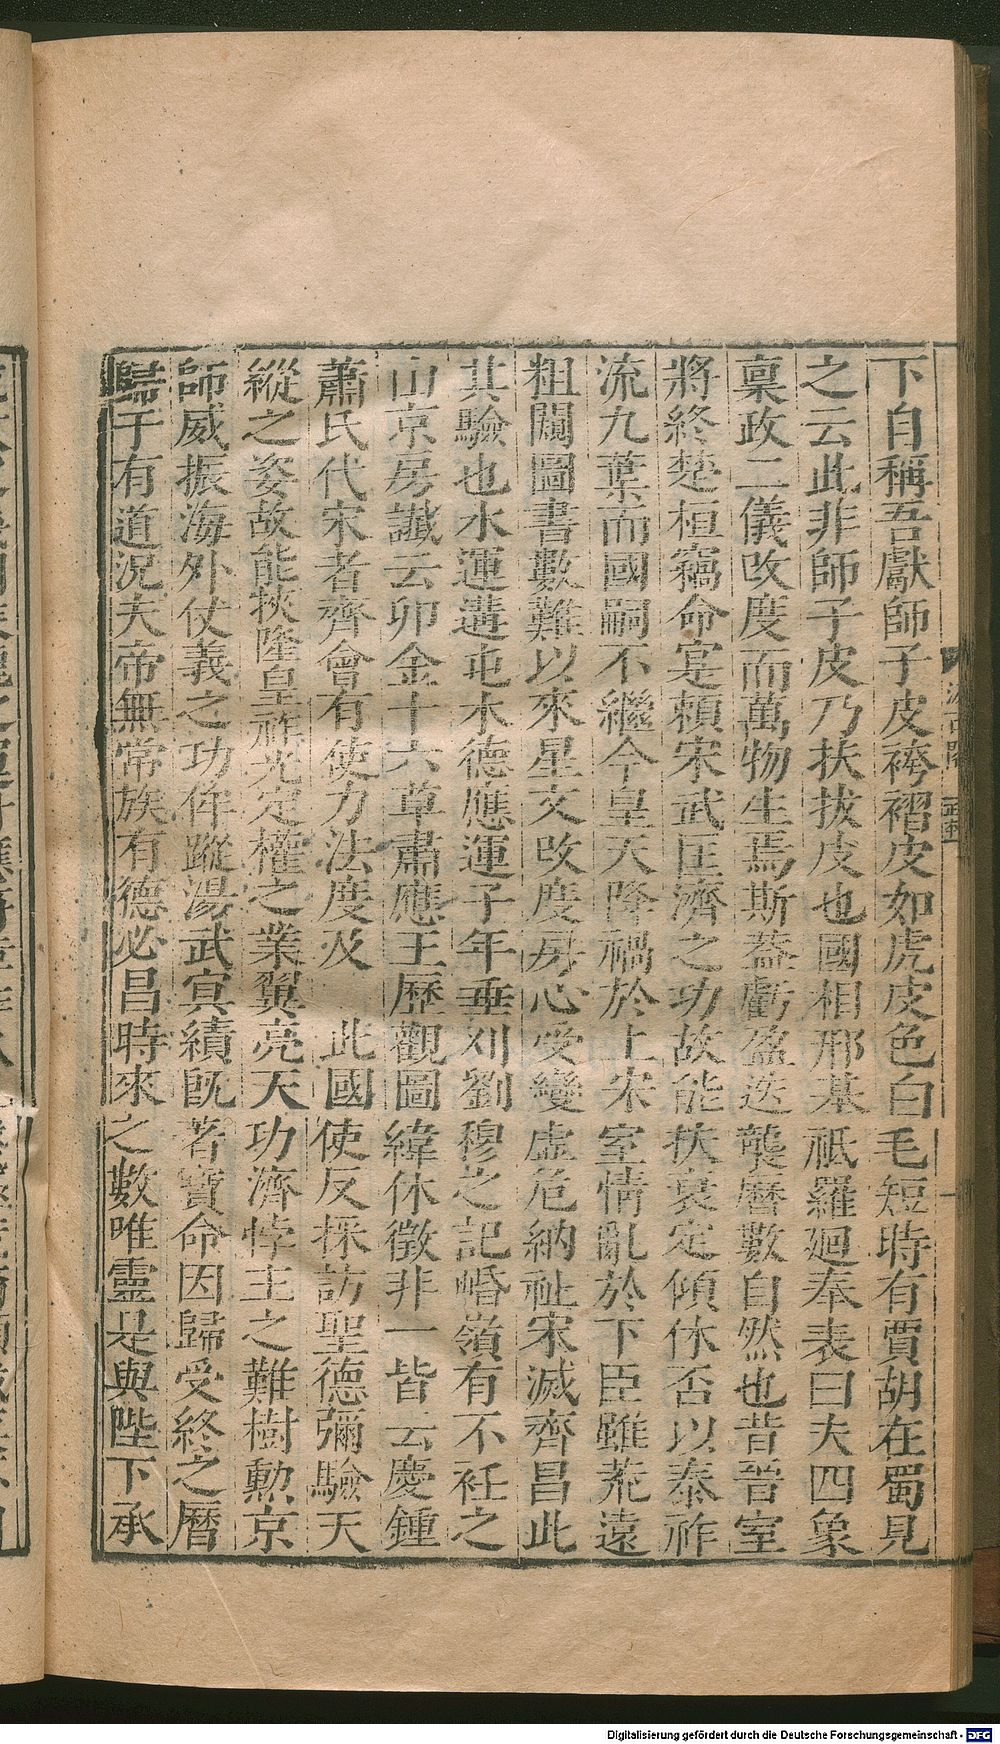 下自稱吾獻師子皮袴褶皮如虎皮色白毛短時有賈胡在蜀見
之云此非師子皮乃扶拔皮也國相邢基祗羅廻奉表曰夫四象
稟政二儀改度而萬物生焉斯葢虧盈迭襲曆數自然也昔晉室
將終楚桓竊命寔賴宋武匡濟之功故能扶衰定傾休否以泰祚
流九葉而國嗣不繼今皇天降禍於上宋室情亂於下臣雖荒遠
粗闚圖書數難以來星文改度房心受變虚危納祉宋滅齊昌此
其驗也水運遘屯木德應運子年垂刈劉穆之記崏嶺有不衽之
山京房讖云卯金十六草肅應王歷觀圖緯休徵非一皆云慶鍾
蕭氏代宋者齊會有使力法度及 此國使反採訪聖德彌驗天
縱之姿故能挾隆皇祚光定權之業翼亮天功濟悖主之難樹勳京
師威振海外仗義之功侔蹤湯武寘績旣著寶命因歸受終之曆
歸于有道況夫帝無常族有德必昌時來之數唯靈是與陛下承
Digitalisierung gefördert durch die Deutsche Forschungsgemeinschaft - DFG